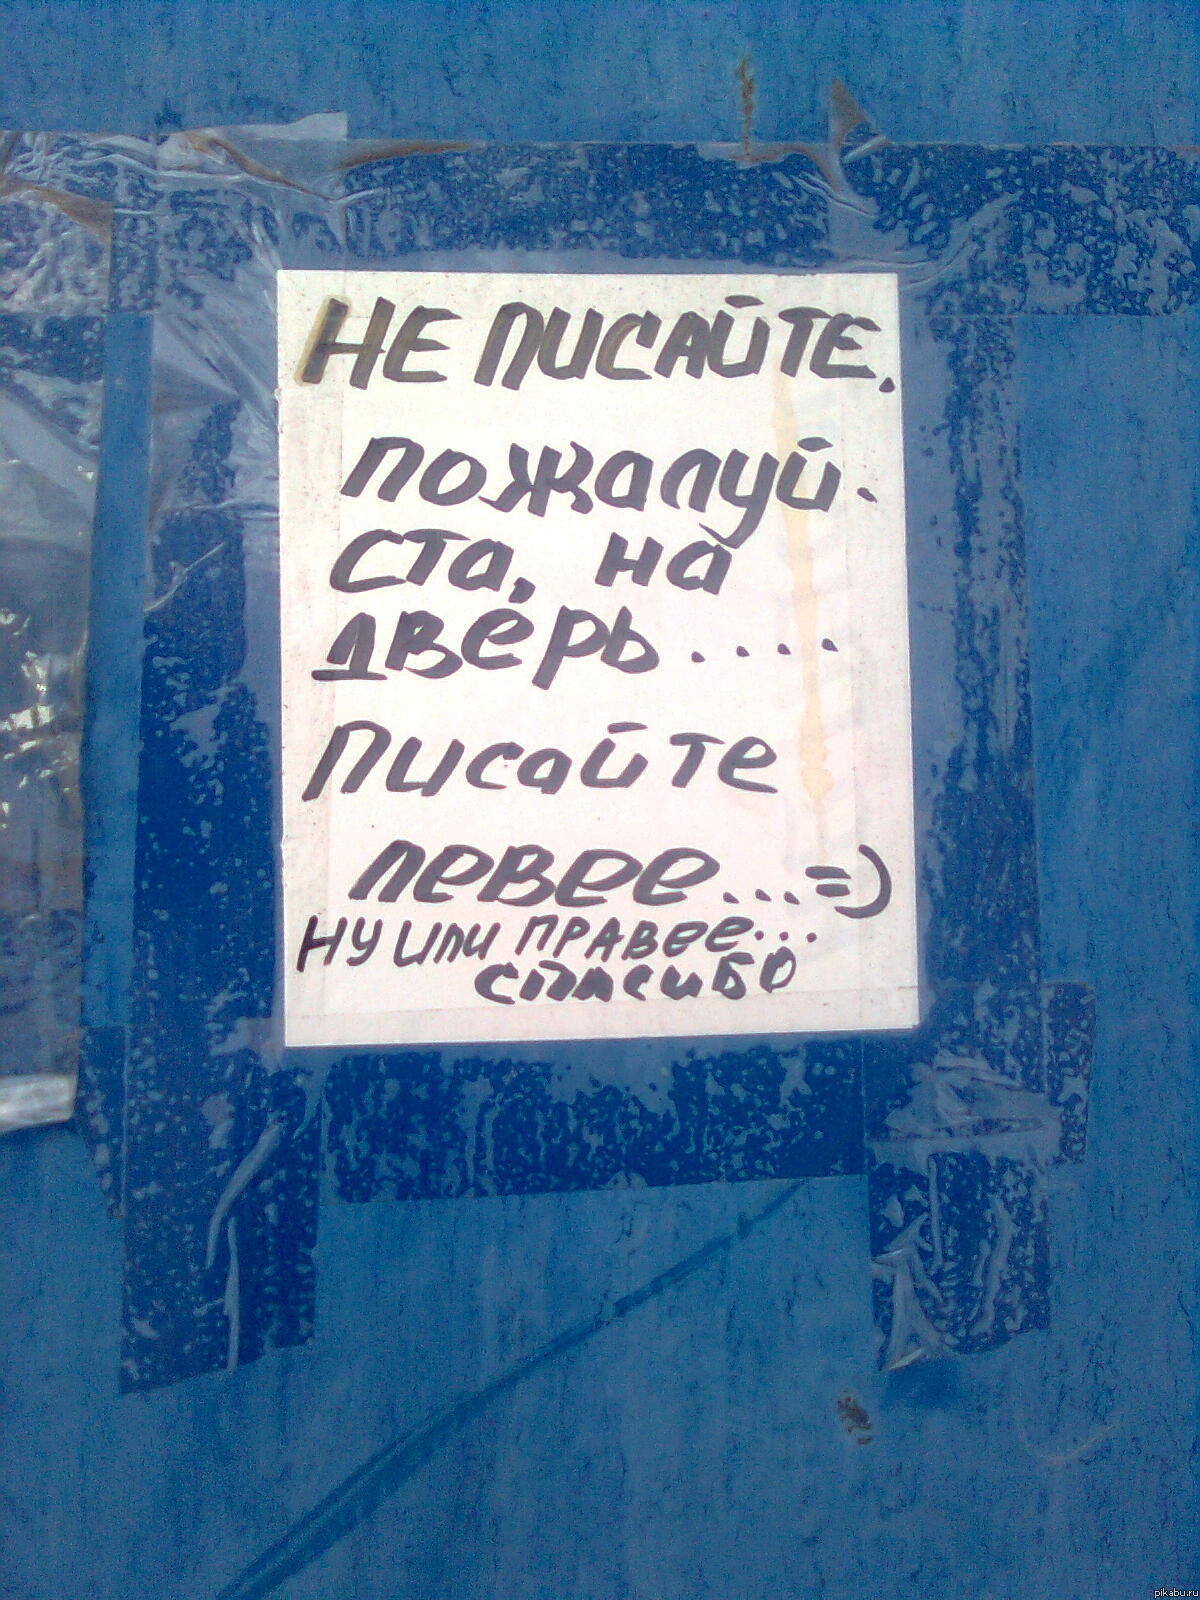 НЕ ПИСАЙТЕ,
пожалуй-
ста, на
дверь....
Писайте
левее...=)
ну или правее...
спасибо
pikabu.ru